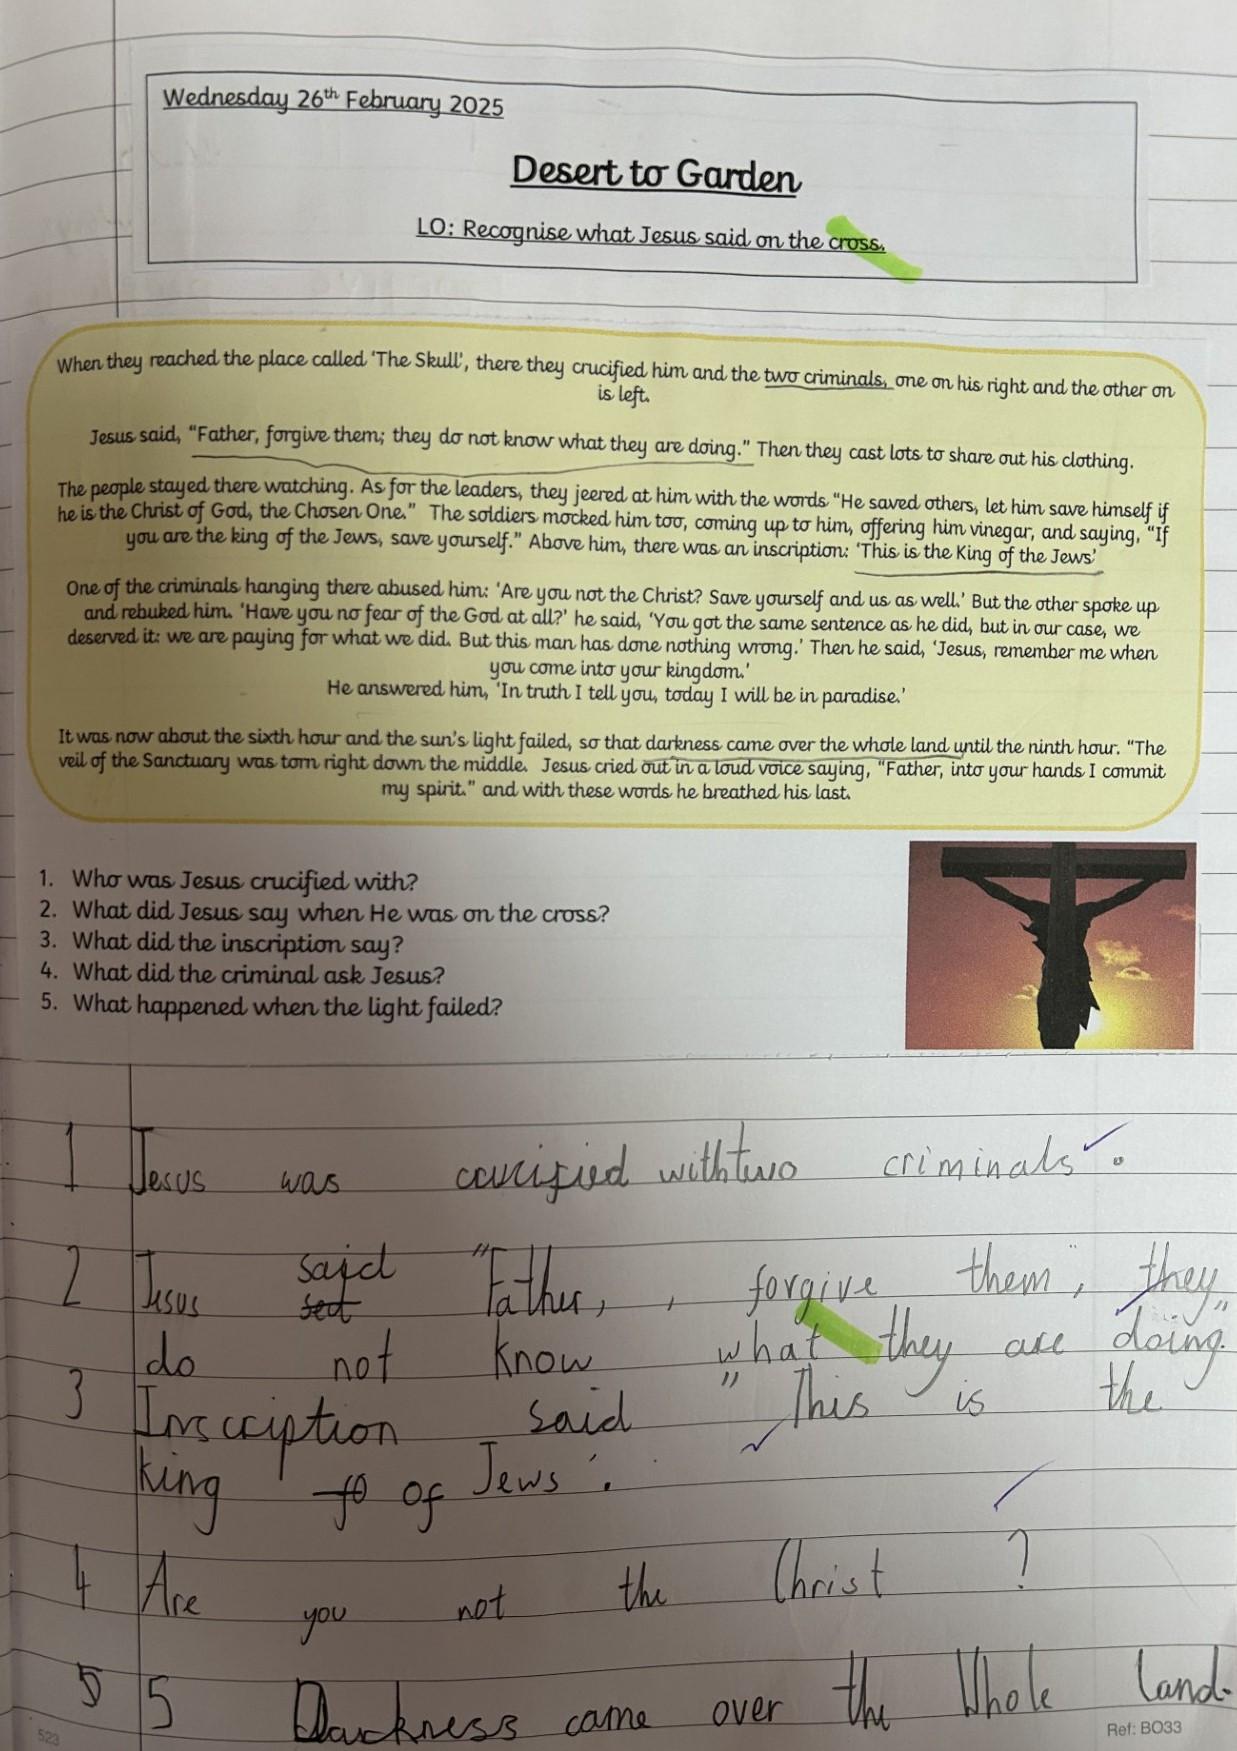 Wednesday 26th February 2025
Desert to Garden
LO: Recognise what Jesus said on the cross.
When they reached the place called ‘The Skull’, there they crucified him and the two criminals, one on his right and the other on
is left.
Jesus said, “Father, forgive them; they do not know what they are doing.” Then they cast lots to share out his clothing.
The people stayed there watching. As for the leaders, they jeered at him with the words “He saved others, let him save himself if
he is the Christ of God, the Chosen One.” The soldiers mocked him too, coming up to him, offering him vinegar, and saying, “If
you are the king of the Jews, save yourself.” Above him, there was an inscription: ‘This is the King of the Jews’
One of the criminals hanging there abused him: ‘Are you not the Christ? Save yourself and us as well.’ But the other spoke up
and rebuked him. ‘Have you no fear of the God at all?’ he said, ‘You got the same sentence as he did, but in our case, we
deserved it: we are paying for what we did. But this man has done nothing wrong.’ Then he said, ‘Jesus, remember me when
you come into your kingdom.’
He answered him, ‘In truth I tell you, today I will be in paradise.’
It was now about the sixth hour and the sun’s light failed, so that darkness came over the whole land until the ninth hour. “The
veil of the Sanctuary was torn right down the middle. Jesus cried out in a loud voice saying, “Father, into your hands I commit
my spirit.” and with these words he breathed his last.
1. Who was Jesus crucified with?
2. What did Jesus say when He was on the cross?
3. What did the inscription say?
4. What did the criminal ask Jesus?
5. What happened when the light failed?
1 Jesus was crucified with two criminals.
said
2 Jesus sed "Father, , forgive them, they
do not know what they are doing."
3 Inscription said "This is the
king fo of Jews'.
4 Are you not the Christ ?
5 5 Darkness came over the Whole land.
523
Ref: BO33